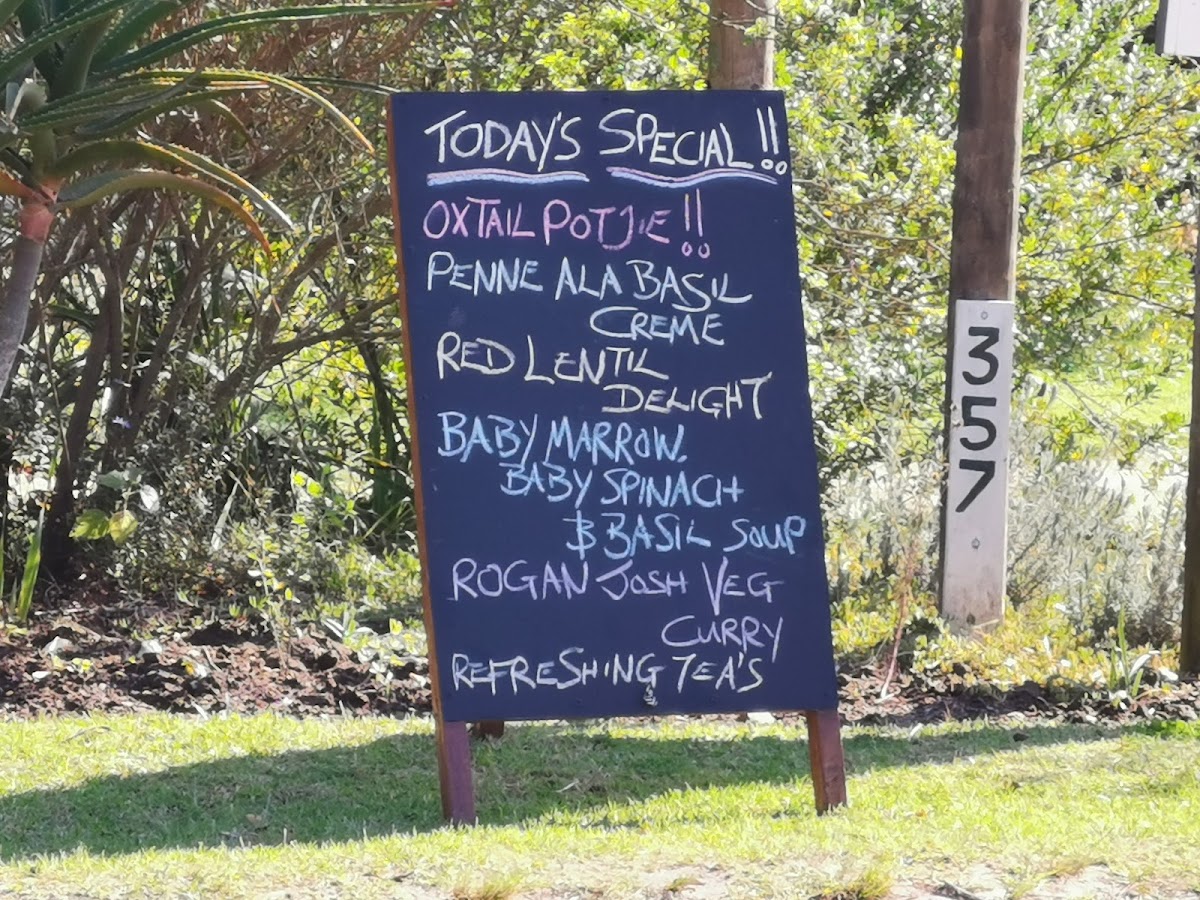 TODAY'S SPECIAL!!
OXTAIL POTJIE!!
PENNE ALA BASIL
CREME
RED LENTIL
DELIGHT
BABY MARROW,
BABY SPINACH
& BASIL SOUP
ROGAN JOSH VEG
CURRY
REFRESHING TEA'S
357